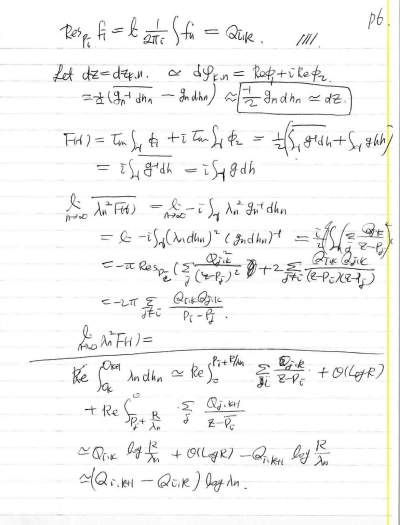 p6.
Res_{p_i} f_i = lim 1/2πi ∫ f_n = Q_{i,k}. ////
Let dz = dz_{k,n}. dφ_{k,n} = Re φ_1 + i Re φ_2
= ½(\overline{g_n^{-1} dh_n} − g_n dh_n) ≈ −½ g_n dh_n ≃ dz.
F(γ) = Im ∫_γ φ_1 + i Im ∫_γ φ_2 = ½(\overline{∫_γ g^{-1}dh} + ∫_γ g dh)
= i \overline{∫_γ g^{-1}dh} = i ∫_γ g dh
lim_{n→∞} \overline{λ_n^2 F(γ)} = lim_{n→∞} −i ∫_γ λ_n^2 g_n^{-1} dh_n
= lim −i ∫_γ (λ_n dh_n)^2 (g_n dh_n)^{-1} =
= −π Res_{p_i} (Σ_j Q_{j,k}^2/(z−p_j)^2 + 2 Σ_{j≠i} Q_{i,k} Q_{j,k}/(z−p_i)(z−p_j)
= −2π Σ_{j≠i} Q_{i,k} Q_{j,k}/p_i − p_j
lim_{n→∞} λ_n^2 F(γ) =
Re ∫_{O_k}^{O_{k+1}} λ_n dh_n ≃ Re ∫_0^{p_i + R/λ_n} Σ_j Q_{j,k}/z−p_j + O(log R)
+ Re ∫_{p_j + R/λ_n}^0 · Σ_j Q_{j,k+1}/z−p_i
≃ Q_{i,k} log R/λ_n + O(log R) − Q_{i,k+1} log R/λ_n
≃ (Q_{i,k+1} − Q_{i,k}) log λ_n.